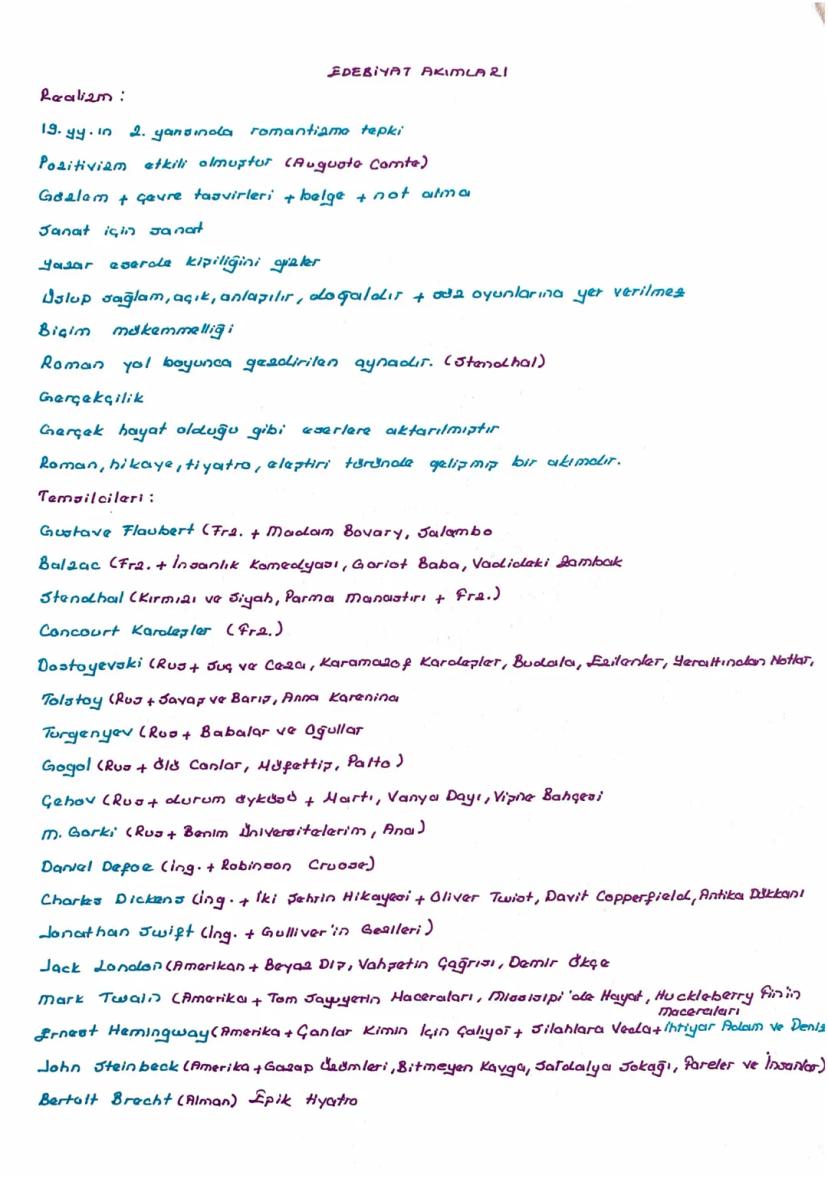 EDEBİYAT AKIMLARI
Realizm :
19. yy. ın 2. yarısında romantizme tepki
Pozitivizm etkili olmuştur (Auguste Comte)
Gözlem + çevre tasvirleri + belge + not alma
Sanat için sanat
Yazar eserde kişiliğini gizler
Üslup sağlam, açık, anlaşılır, doğaldır + söz oyunlarına yer verilmez
Biçim mükemmelliği
Roman yol boyunca gezdirilen aynadır. (Stendhal)
Gerçekçilik
Gerçek hayat olduğu gibi eserlere aktarılmıştır
Roman, hikaye, tiyatro, eleştiri türünde gelişmiş bir akımdır.
Temsilcileri :
Gustave Flaubert (Frz. + Madam Bovary, Salambo
Balzac (Frz. + İnsanlık Komedyası, Goriot Baba, Vadideki Zambak
Stendhal (Kırmızı ve Siyah, Parma Manastırı + Frz.)
Concourt Kardeşler (Frz.)
Dostoyevski (Rus + Suç ve Ceza, Karamazof Kardeşler, Budala, Ezilenler, Yeraltından Notlar,
Tolstoy (Rus + Savaş ve Barış, Anna Karenina
Turgenyev (Rus + Babalar ve Oğullar
Gogol (Rus + Ölü Canlar, Müfettiş, Palto)
Çehov (Rus + durum öyküsü + Martı, Vanya Dayı, Vişne Bahçesi
M. Gorki (Rus + Benim Üniversitelerim, Ana)
Daniel Defoe (ing. + Robinson Cruose)
Charles Dickens (ing. + İki Şehrin Hikayesi + Oliver Twist, Davit Copperfield, Antika Dükkanı
Jonathan Swift (İng. + Gulliver'in Gezileri)
Jack London (Amerikan + Beyaz Diş, Vahşetin Çağrısı, Demir Ökçe
Mark Twain (Amerika + Tom Sawyerin Maceraları, Missisipi'de Hayat, Huckleberry Fin'in
Maceraları
Ernest Hemingway (Amerika + Çanlar Kimin İçin Çalıyor + Silahlara Veda + İhtiyar Adam ve Deniz
John Steinbeck (Amerika + Gazap Üzümleri, Bitmeyen Kavga, Sardalya Sokağı, Fareler ve İnsanlar)
Bertolt Brecht (Alman) Epik tiyatro